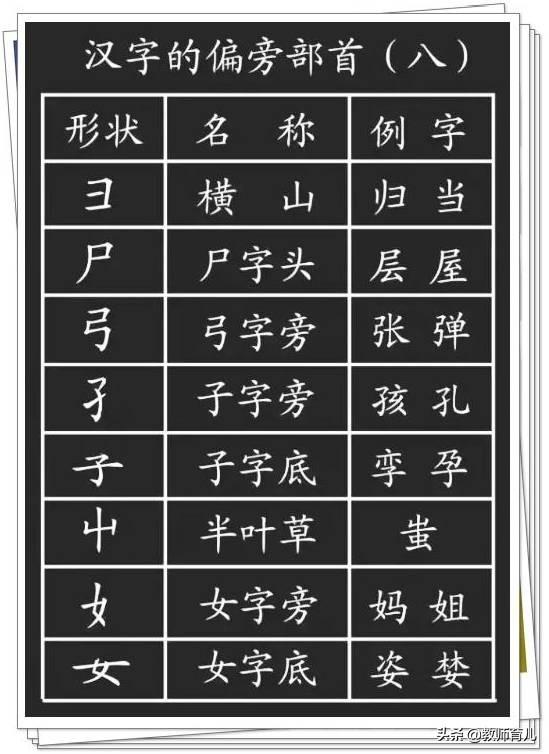 汉字的偏旁部首（八）
形状 名称 例字
彐 横山 归 当
尸 尸字头 层 屋
弓 弓字旁 张 弹
孑 子字旁 孩 孔
子 子字底 孪 孕
屮 半叶草 蚩
女 女字旁 妈 姐
女 女字底 姿 婪
头条 @教师育儿